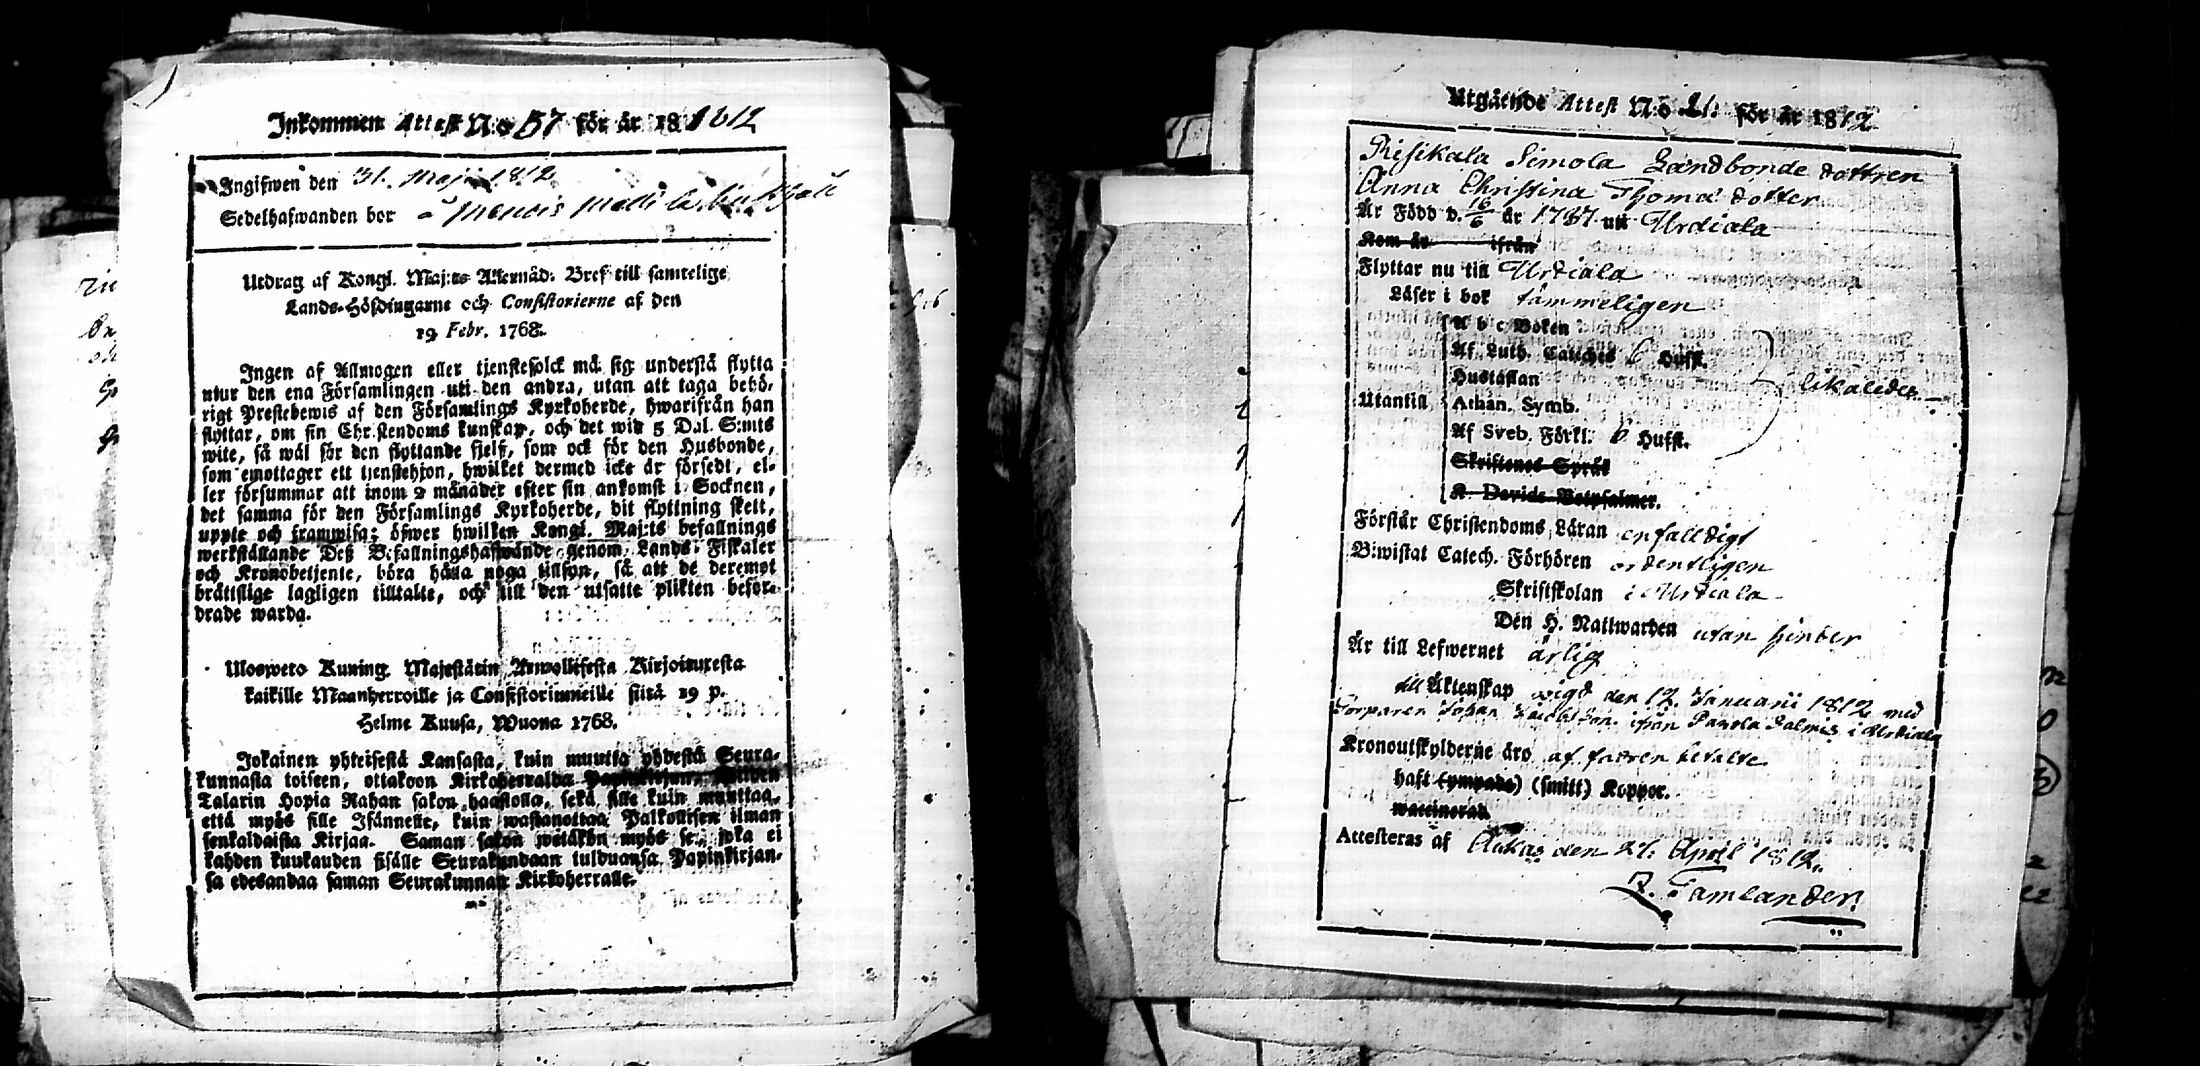 Inkommen Attest N:o 57 för år 18 1812
Ingifwen den 31. Maji 1812
Sedelhafwanden bor å
Utdrag af Kongl. Maj:ts Allernåd. Bref till samtelige
Lands-Höfdingarne och Consistorierne af den
19 Febr. 1768.
Ingen af Allmogen eller tjenstefolck må sig understå flytta
utur den ena Församlingen uti den andra, utan att taga behö-
rigt Prestebewis af den Församlings Kyrkoherde, hwarifrån han
flyttar, om sin Christendoms kunskap, och det wid 5 Dal. S:mts
wite, så wäl för den flyttande sjelf, som ock för den Husbonde,
som emottager ett tjenstehjon, hwilket dermed icke är försedt, el-
ler försummar att inom 2 månader efter sin ankomst i Socknen,
det samma för den Församlings Kyrkoherde, dit flyttning skett,
uppte och framwisa; öfwer hwilken Kongl. Maj:ts befallnings
werkställande Deß Befallningshafwande genom Lands-Fiskaler
och Kronobetjente, böra hålla noga tillsyn, så att de deremot
bråttslige lagligen tilltalte, och till den utsatte plikten befor-
drade warda.
Ulosweto Kuning. Majestätin Armollisesta Kirjoituxesta
kaikille Maanherroille ja Consistoriumneille siitä 19 p.
Helme Kuusa, Wuona 1768.
Jokainen yhteisestä Kansasta, kuin muutta yhdestä Seura-
kunnasta toiseen, ottakoon Kirkoherralda Papinkirjan, Wiiden
Talarin Hopia Rahan sakon haastolla, sekä sille kuin muuttaa,
että myös sille Isännelle, kuin wastanottaa Palkollisen ilman
senkaldaista Kirjaa. Saman sakon wetäkön myös se, joka ei
kahden kuukauden sisälle Seurakundaan tulduansa Papinkirjan-
sa edesandaa saman Seurakunnan Kirkoherralle.
Utgående Attest N:o 21. för år 1812
Risikala Simola Landbonde dottren
Anna Christina Thomædotter
Är Född d. 16/6 år 1787 uti Urdiala
Kom år ifrån
Flyttar nu till Urdiala
Läser i bok tämmeligen
A b c Boken
Af Luth. Cateches 6 Hufst.
Hustaflan likaledes
Utantill Athan. Symb.
Af Sveb. Förkl. 6 Hufst.
Skriftenes Språk
K. Davids Botpsalmer.
Förstår Christendoms Läran enfalldigt
Biwistat Catech. Förhören ordentligen
Skriftskolan i Urdiala
Den H. Nattwarden utan hinder
Är till Lefwernet ärlig
till Äktenskap wigd den 12. Januarii 1812 med
Torparen Johan Jacobsson ifrån Palmis i Urdiala
Kronoutskylderne äro af fadren betalte
haft (ympade) (smitt) Koppor.
waccinerad
Attesteras af Ackas den 21. April 1812.
Z. Tamlander.